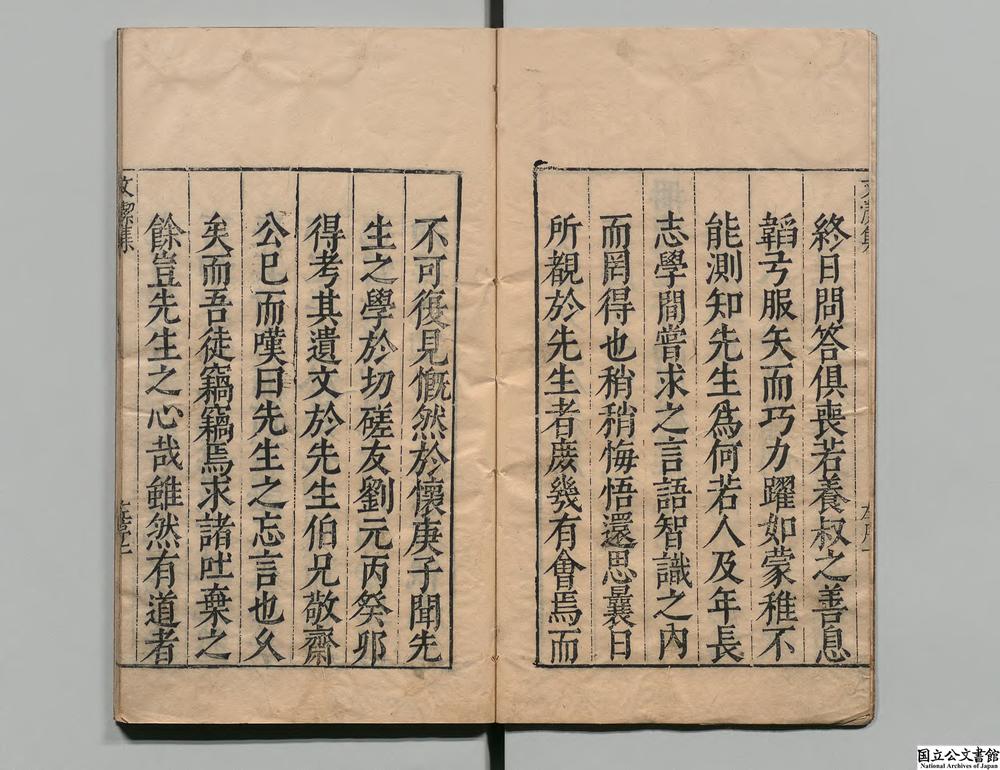 終日問答俱喪若養叔之善息
韜弓服矢而巧力躍如蒙稚不
能測知先生為何若人及年長
志學間嘗求之言語智識之內
而罔得也稍稍悔悟還思曩日
所覩於先生者庶幾有會焉而
不可復見慨然於懷庚子聞先
生之學於切磋友劉元丙癸卯
得考其遺文於先生伯兄敬齋
公已而嘆曰先生之忘言也久
矣而吾徒竊竊焉求諸吐棄之
餘豈先生之心哉雖然有道者
文潔集
国立公文書館
National Archives of Japan